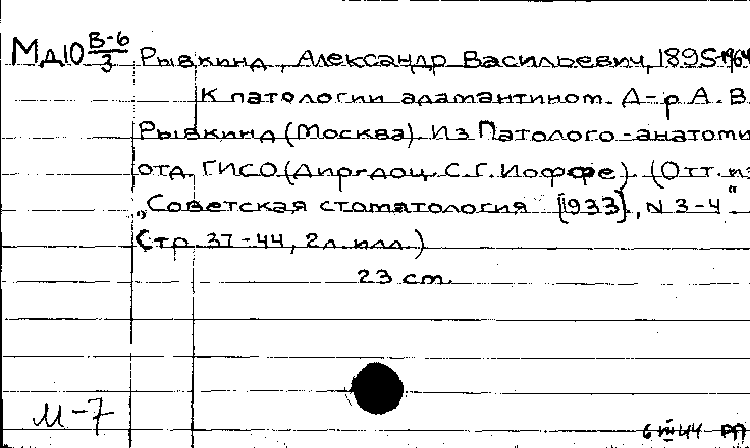 МД10 В-6/3 Рывкинд, Александр Васильевич, 1895-1964
К патологии адамантином. Д-р А. В.
Рывкинд (Москва). Из Патолого-анатоми
отд. ГИСО (Дир-доц. С. Г. Иоффе). (Отт. из
„Советская стоматология [1933], N 3-4"
Стр. 37-44, 2 л. илл.)
23 cm.
М-7
6 III 44 РП